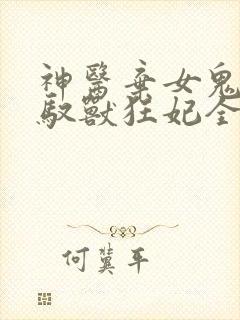 神醫棄女鬼
馭獸狂妃全
何冀平